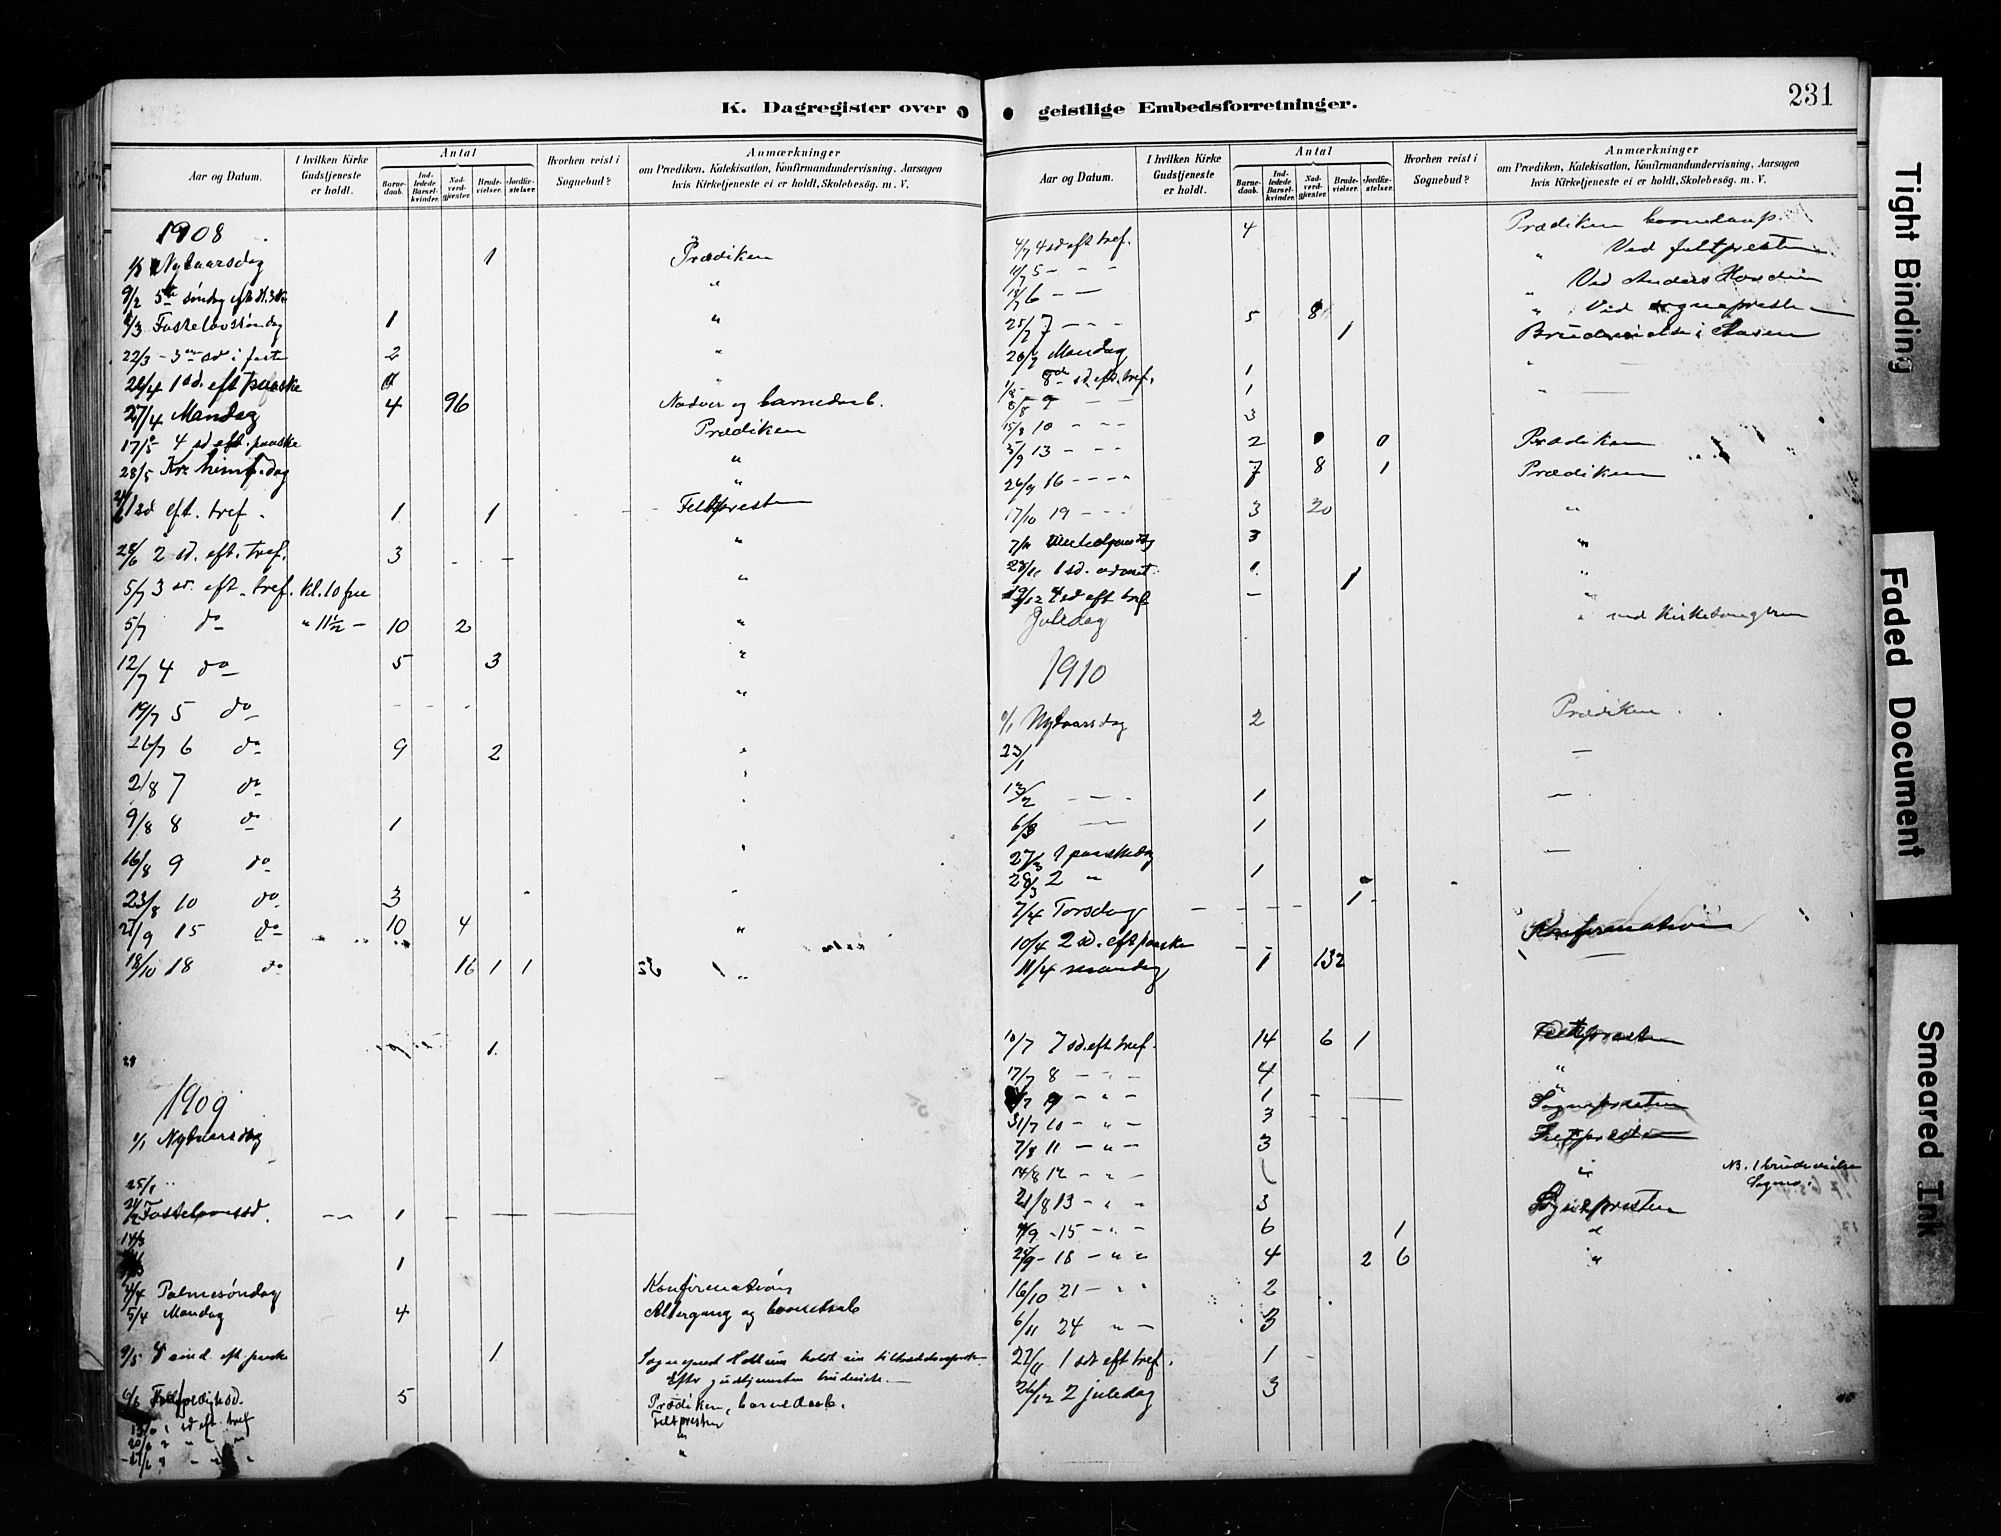 K. Dagregister over
Aar og Datum.
I hvilken Kirke Gudstjeneste er holdt.
Antal
Barnedaab.
Indledede Barselkvinder.
Nadverdgjæster.
Brudevielser.
Jordfæstelser.
Hvorhen reist i Sognebud?
Anmærkninger
om Prædiken, Katekisation, Konfirmandundervisning, Aarsagen
hvis Kirketjeneste ei er holdt, Skolebesøg. m. V.
1908
Nytaarsdag 1 Prædiken
9/2 5te søndag eft. H.3.K. "
Fastelavssøndag 1 "
22/3 - 3die sd i faste 2 "
26/4 1 sd. eft paaske
27/4 Mandag 4 96 Nadver og barnedaab.
17/5 4 sd eft. paaske Prædiken
28/5 Kr. himf. dag "
1 sd eft. tref. 1 1 Feltpresten
28/6 2 sd. eft. tref. 3 "
5/7 3 sd. eft. tref. kl. 10 fm "
5/7 do " 11½ - 10 2 "
12/7 4 do 5 3 "
19/7 5 do "
26/7 6 do 9 2 "
2/8 7 do
9/8 8 do 1
16/8 9 do
23/8 10 do 3
27/9 15 do 10 4 "
18/10 18 do 16 1 1 "
1
1909
1/1 Nytaarsdag
25/1
Fastelavnssd. 1
14/3
1
4/4 Palmesøndag Konfirmation
5/4 Mandag 4 Altergang og barnedaab
9/5 4 sønd. eft. paaske 1 Sogneprest holdt sin
Efter gudstjenesten
5 Prædiken, barnedaab.
13/6 1 sd eft. tref Feltpresten
20/6 2 " "
27/6 3 " "
geistlige Embedsforretninger.
231
Aar og Datum.
I hvilken Kirke Gudstjeneste er holdt.
Antal
Barnedaab.
Indledede Barselkvinder.
Nadverdgjæster.
Brudevielser.
Jordfæstelser.
Hvorhen reist i Sognebud?
Anmærkninger
om Prædiken, Katekisation, Konfirmandundervisning, Aarsagen
hvis Kirketjeneste ei er holdt, Skolebesøg. m. V.
4/7 4 sd eft tref. 4 Prædiken barnedaap.
11/7 5 - - - " Ved feltpresten
18/7 6 - - " Ved Anders
25/7 7 - - - 5 8 " Ved sognepresten
26/7 Mandag 1 Brudevielse i Aasen
1/8 8de sd. eft. tref. 1 "
8/8 9 - - 1
15/8 10 - - - 3
5/9 13 - - - 2 0 Prædiken
26/9 16 - - - 7 8 1 Prædiken
17/10 19 - - - 3 20 "
7/11 3 "
28/11 1 sd. advent 1 1 "
19/12 4 sd eft tref - "
Juledag " ved Kirkesangeren
1910
1/1 Nytaarsdag 2 Prædiken
23/1 -
13/2 - - 1 -
6/3 - 1
27/3 1 paaskedag -
28/3 2 " 1
7/4 Torsdag 1
10/4 2 sd. eft paaske Konfirmation
11/4 mandag 1 132 -
10/7 7 sd. eft tref. 14 6 1 Feltpresten
17/7 8 - " - 4 "
9 - " - 1 Sognepresten
31/7 10 - " - 3 Feltpresten
7/8 11 - " - 3
14/8 12 - " - " NB. 1 brudevielse
21/8 13 - " " 3 Sognepresten
15 - " - 6 1 "
18 - " " 4 2 6 "
16/10 21 - " 2
6/11 24 " - 3
27/11 1 sd eft tref. 1
26/12 2 juledag 3
Tight Binding
Faded Document
Smeared Ink